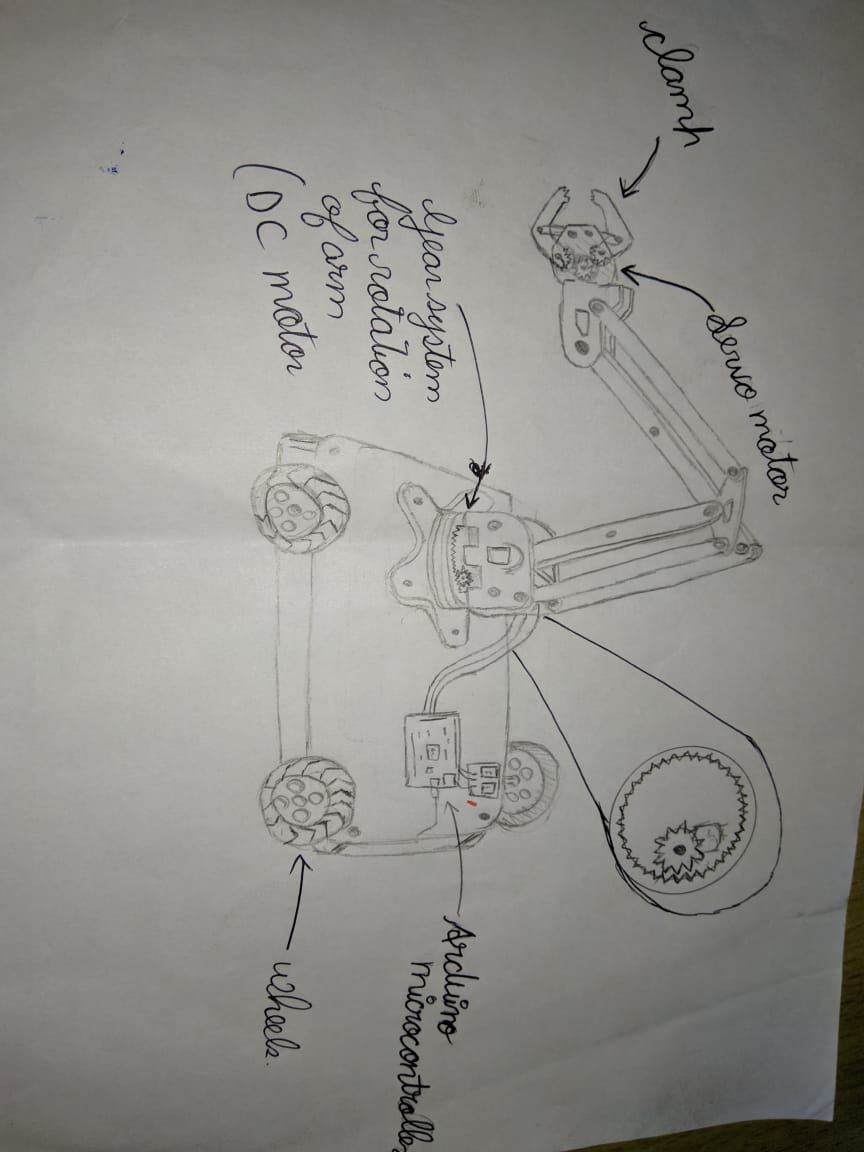 clamp
Servo motor
Gear system
for rotation
of arm
(DC motor
Arduino
microcontroller
wheels.